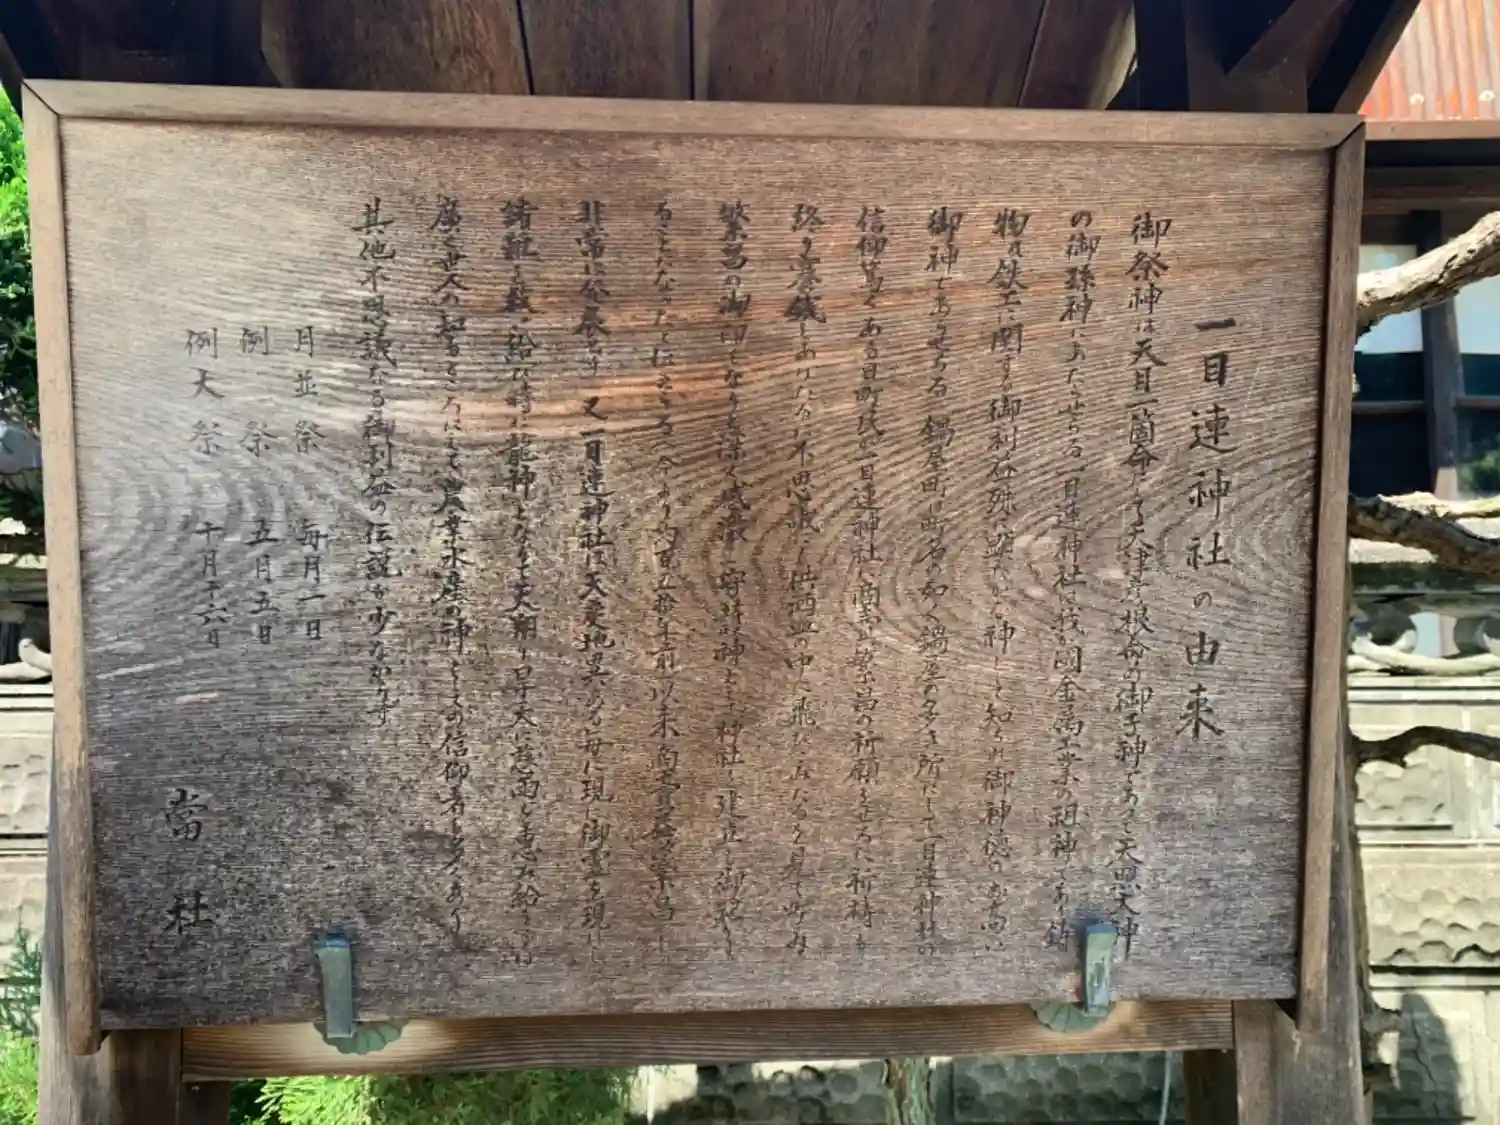 一目連神社の由来
御祭神は天目一箇命にして天津彦根命の御子神であって天照大神
の御孫神にあたらせらる一目連神社は我が国金属工業の祖神であり鋳
物及鉄工に関する御利益殊に顕たかな神として知られ御神徳のお高い
御神であらせらる 鍋屋町は町名の如く鍋屋の多き所にして一目連神社の
信仰篤くある日町民が一目連神社に商売繁昌の祈願をこめるに祈祷も
終り賽銭しありたるに不思議にも供酒皿の中に飛びこみたるを見て町民
繁昌の御印となりと深く感激し守護神として神社を建立し御祀り
ることになったと伝えらる 今より約百五拾年前以来商売益々繁昌し
非常に発展せり 又一目連神社は天変地異ある毎に現に御霊を現はし
諸難を救い給ひ時に龍神となりて天翔り旱天に慈雨を恵み給うは
廣く世人の知るところにして農業水産の神としての信仰者も多くあり
其他不思議なる御利益の伝説も少なからず
月並祭 毎月一日
例祭 五月五日
例大祭 十月十六日
當社